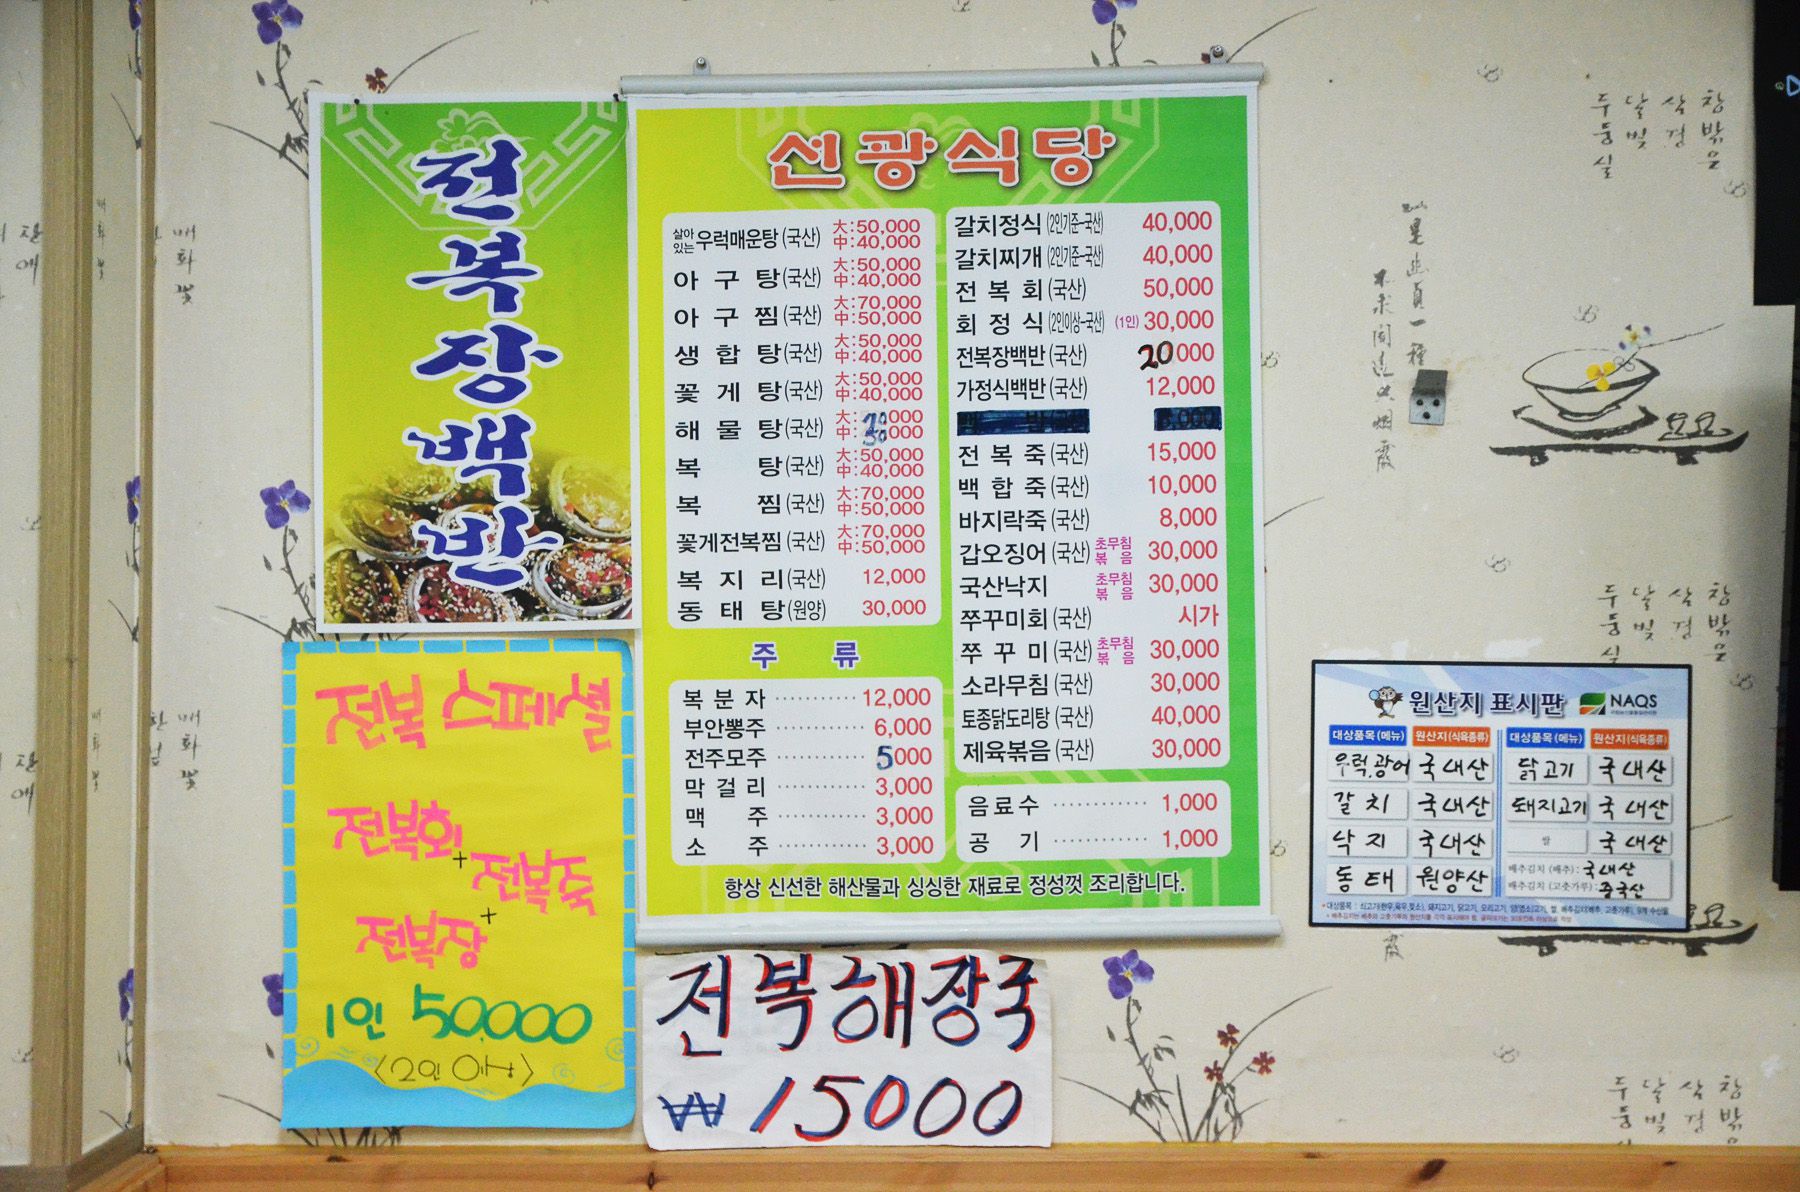 전복장백반
신광식당
살아있는 우럭매운탕(국산) 大:50,000 中:40,000
아구탕(국산) 大:50,000 中:40,000
아구찜(국산) 大:70,000 中:50,000
생합탕(국산) 大:50,000 中:40,000
꽃게탕(국산) 大:50,000 中:40,000
해물탕(국산) 大:70,000 中:50,000
복탕(국산) 大:50,000 中:40,000
복찜(국산) 大:70,000 中:50,000
꽃게전복찜(국산) 大:70,000 中:50,000
복지리(국산) 12,000
동태탕(원양) 30,000
주류
복분자 12,000
부안뽕주 6,000
전주모주 5000
막걸리 3,000
맥주 3,000
소주 3,000
갈치정식(2인기준-국산) 40,000
갈치찌개(2인기준-국산) 40,000
전복회(국산) 50,000
회정식(2인이상-국산) (1인) 30,000
전복장백반(국산) 20000
가정식백반(국산) 12,000
전복죽(국산) 15,000
백합죽(국산) 10,000
바지락죽(국산) 8,000
갑오징어(국산) 초무침 볶음 30,000
국산낙지 초무침 볶음 30,000
쭈꾸미회(국산) 시가
쭈꾸미(국산) 초무침 볶음 30,000
소라무침(국산) 30,000
토종닭도리탕(국산) 40,000
제육볶음(국산) 30,000
음료수 1,000
공기 1,000
항상 신선한 해산물과 싱싱한 재료로 정성껏 조리합니다.
전복 스페셜
전복회
+
전복죽
+
전복장
1인 50000
<2인 이상>
전복해장국
₩15000
원산지 표시판 NAQS
대상품목(메뉴) 원산지(식육종류) 대상품목(메뉴) 원산지(식육종류)
우럭,광어 국내산 닭고기 국내산
갈치 국내산 돼지고기 국내산
낙지 국내산 쌀 국내산
동태 원양산 배추김치(배추): 국내산
배추김치(고춧가루): 중국산
창밖은
삼경
달빛
두둥실
매화꽃